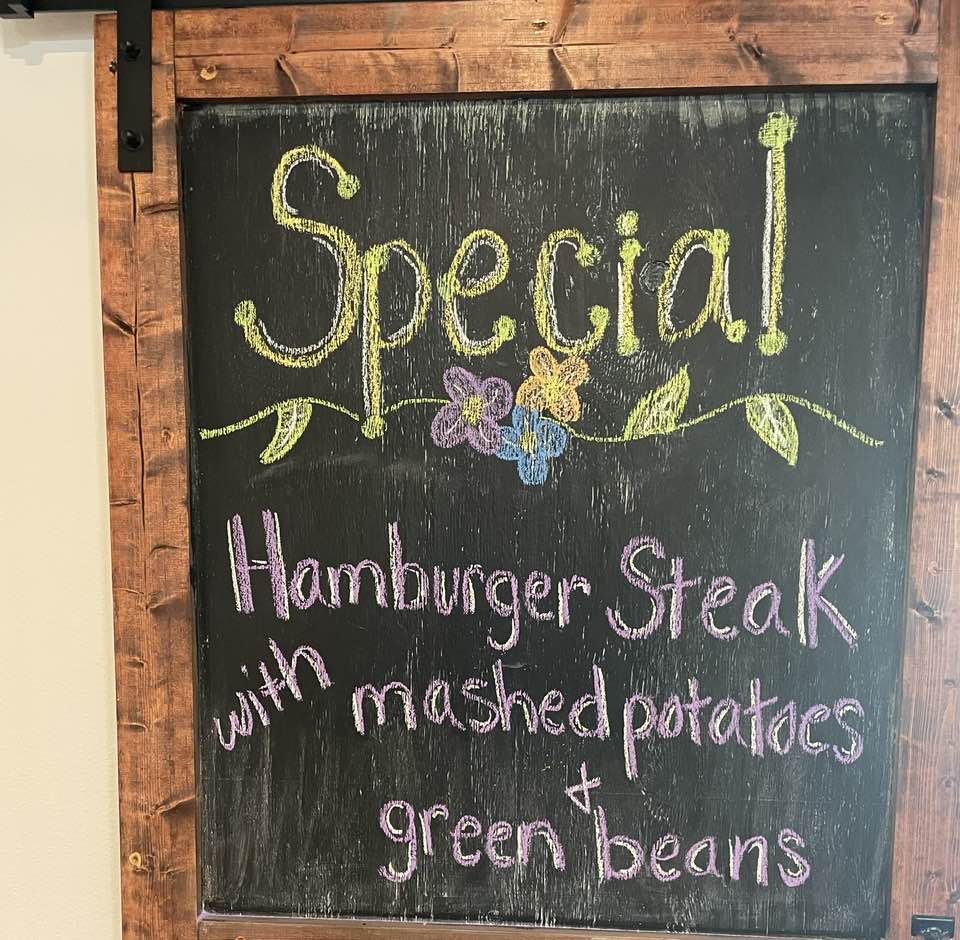 Special
Hamburger Steak
with mashed potatoes
+
green beans